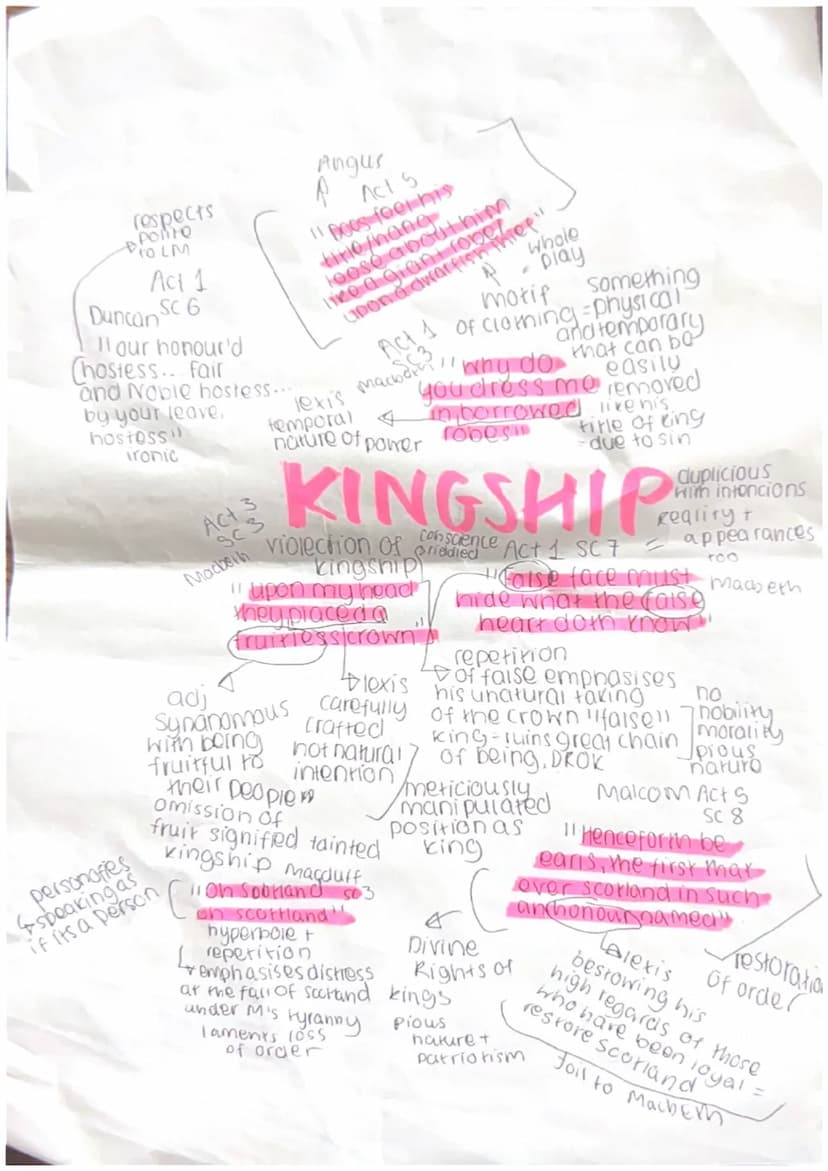 Angus
Act 5
"Does feel his
title/hang
loose about him
like a giant robe/
upon a dwarfish thief"
whole
play
motif
of clothing = something
physical
and temporary
that can be
easily
removed
like his
title of king
- due to sin
respects
polite
to LM
Act 1
SC 6
Duncan
"our honour'd
hostess... fair
and Noble hostess...
by your leave,
hostess"
ironic
Act 1
SC3
Macbeth
"Why do
you dress me
in borrowed
robes"
lexis
temporal
nature of power
KINGSHIP
duplicious
with intencions
reality +
appearances
too
Act 3
SC 3
Macbeth
violection of
kingship
"upon my head
they placed a
fruitless crown"
conscience
Act 1 SC 7
Macbeth
"false face must
hide what the false
heart doth know"
adj
synanomous
with being
fruitful to
their people
omission of
fruit signified tainted
kingship
lexis
carefully
crafted
not natural
intention
meticiously
manipulated
position as
king
repetition
of false emphasises
his unatural taking
of the crown "false"
king - ruins great chain
of being, DROK
no
nobility
morality
pious
nature
Malcom Act 5
SC 8
"Henceforth be
earls, the first that
ever scotland in such
an honour named"
lexis
bestowing his
high regards of those
who have been loyal =
restore Scotland
foil to Macbeth
restoration
of order
Divine
Rights of
kings
pious
nature +
patriotism
Macduff
SC3
"Oh Scotland
oh scottland"
personafies
speaking as
if its a person
hyperbole +
repetition
emphasises distress
at the fall of scotland
under M's tyranny
laments loss
of order